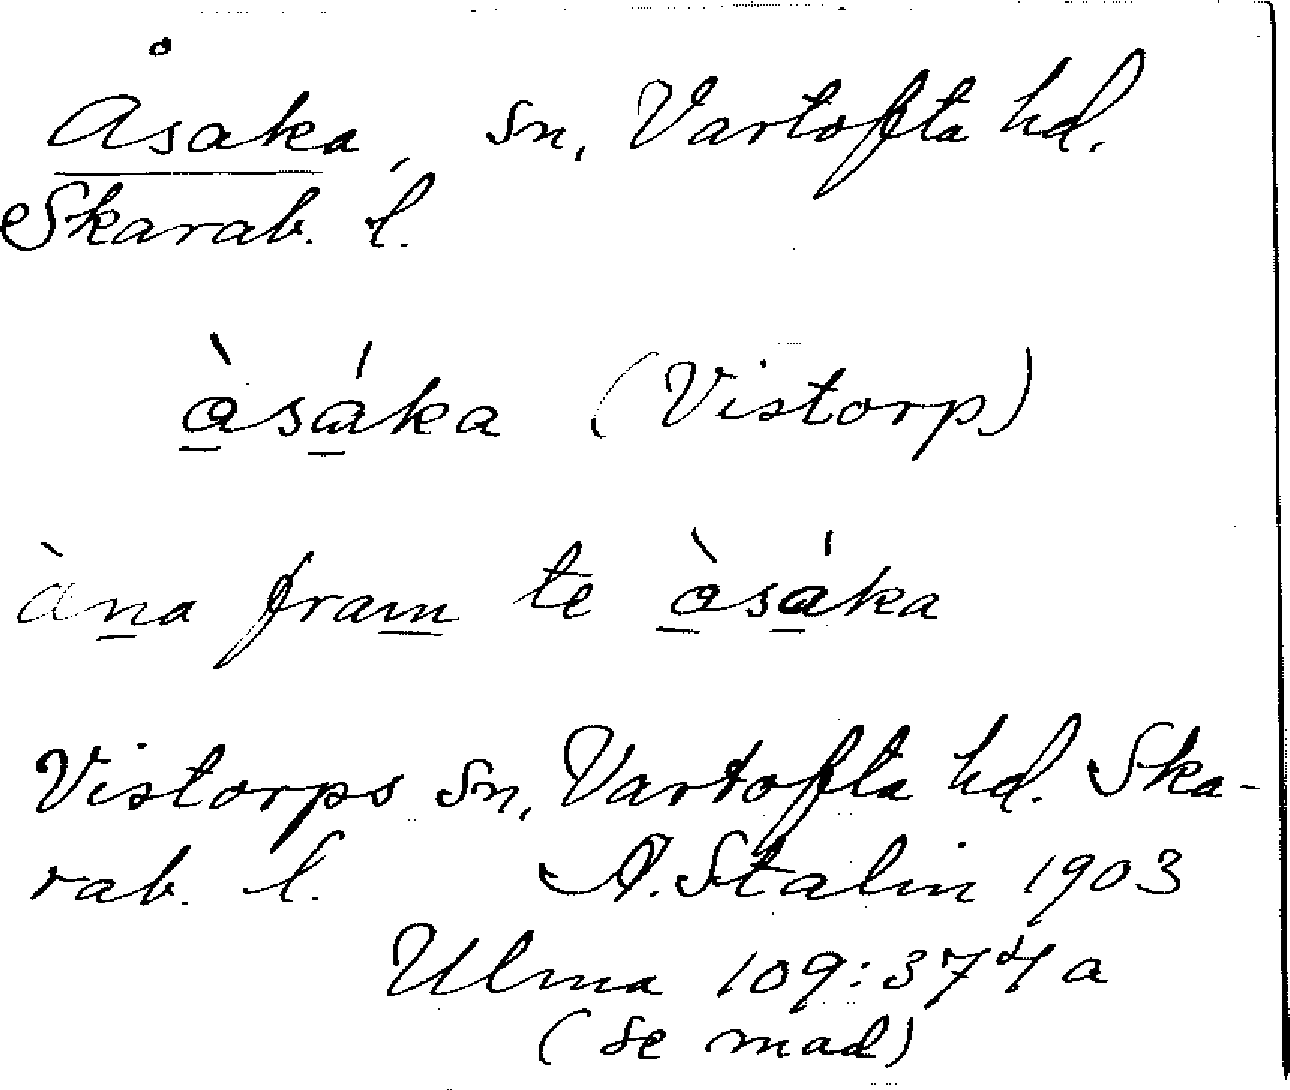 Åsaka, sn, Vartofta hd.
Skarab. l.
à̲sá̲ka (Vistorp)
àn̲a fram̲ te à̲sá̲ka
Vistorps sn, Vartofta hd. Ska-
rab. l. A. Stalin 1903
Ulma 109:374a
(se mad)